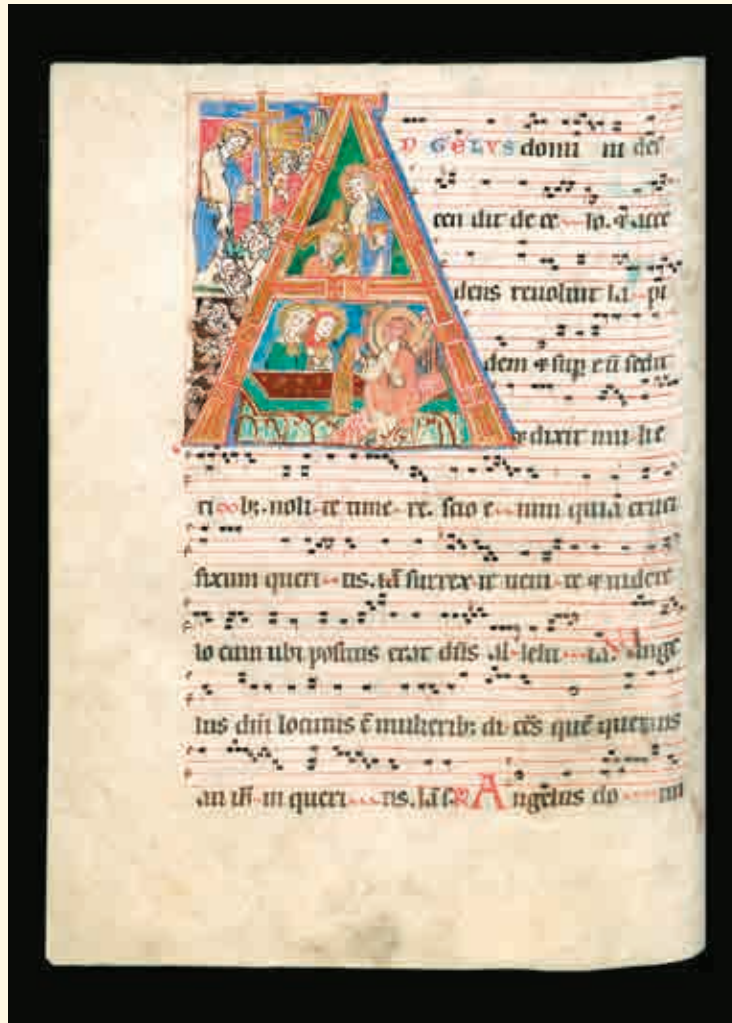 A NGELVS domi ni des
cen dit de ce lo. & acce
dens reuoluit la pi
dem & sup eū sedit
& dixit mu lie
ri b; noli te time re. scio e nim quia cruci
fixum queri tis. iā surrex it ueni te & uidete
lo cum ubi positus erat dn̄s al lelu ia. V Ange
lus dn̄i locutus ē mulierib; di cēs quē queritis
an ih̄m queri tis. Iā s. R Angelus do mi